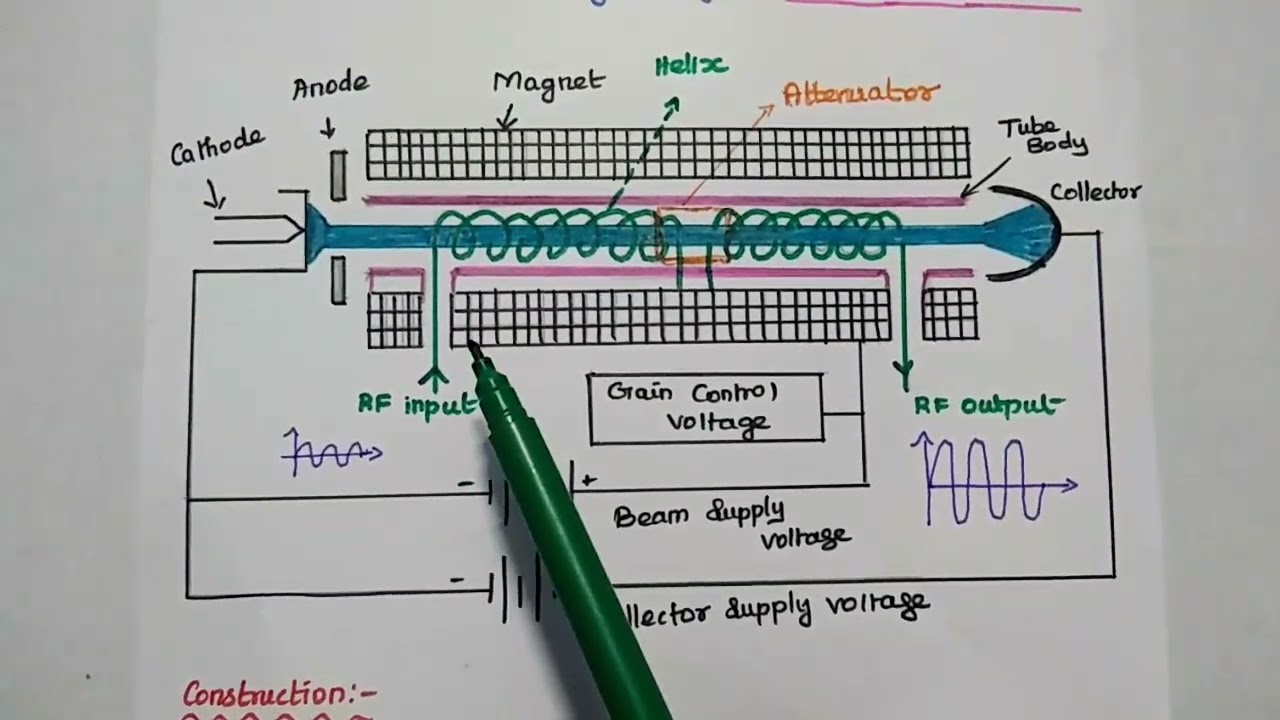 Anode
Magnet
Helix
Attenuator
Cathode
Tube
Body
Collector
RF input
Gain Control
voltage
RF output
-
+
Beam Supply
voltage
-
llector Supply voltage
Construction:-